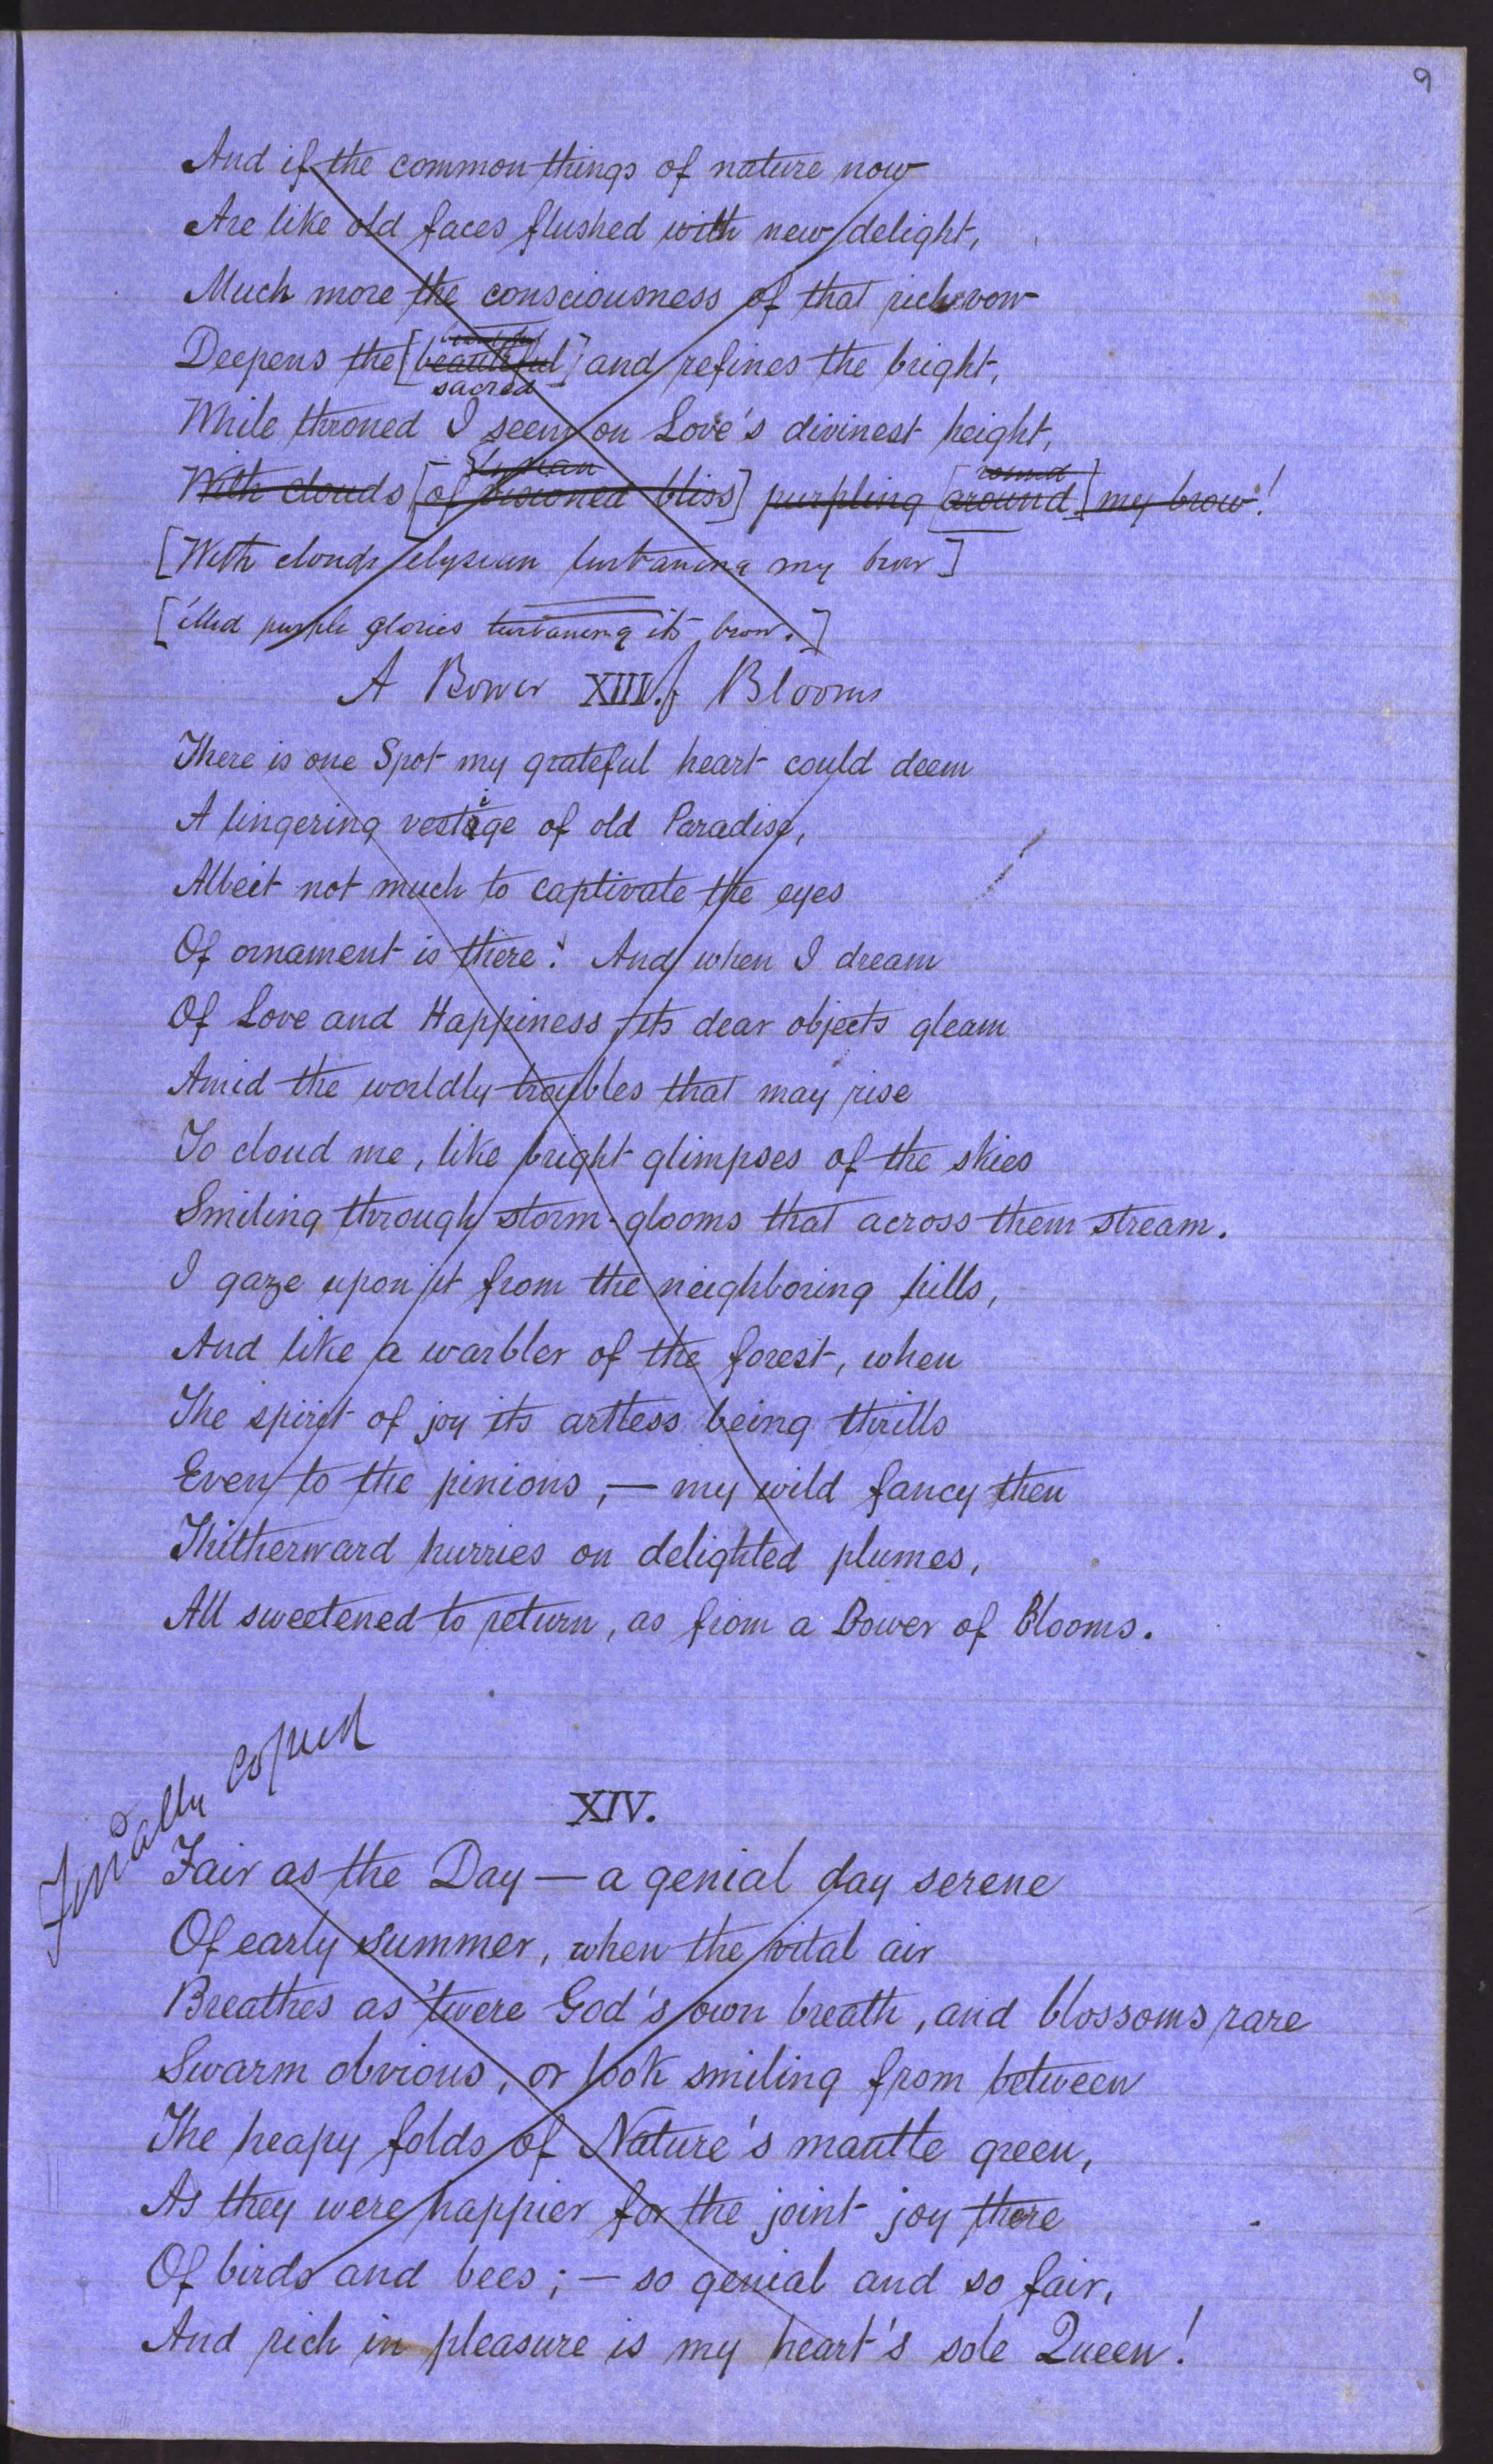 9
And if the common things of nature now
Are like old faces flushed with new delight,
Much more the consciousness of that rich vow
beautiful
Deepens the [beautiful] and refines the bright,
sacred
While throned I seem on Love's divinest height,
Elysian round
With clouds [of visioned bliss] purpling [around] my brow!
[With clouds elysian turbaning my brow]
['Mid purple glories turbaning its brow.]
A Bower XIII. of Blooms
There is one Spot my grateful heart could deem
A lingering vestige of old Paradise,
Albeit not much to captivate the eyes
Of ornament is there: And when I dream
Of Love and Happiness, its dear objects gleam
Amid the worldly troubles that may rise
To cloud me, like bright glimpses of the skies
Smiling through storm-glooms that across them stream.
I gaze upon it from the neighboring hills,
And like a warbler of the forest, when
The spirit of joy its artless being thrills
Even to the pinions, — my wild fancy then
Thitherward hurries on delighted plumes,
All sweetened to return, as from a Bower of Blooms.
Finally copied
XIV.
Fair as the Day — a genial day serene
Of early summer, when the vital air
Breathes as 'twere God's own breath, and blossoms rare
Swarm obvious, or look smiling from between
The heapy folds of Nature's mantle green,
As they were happier for the joint joy there
Of birds and bees; — so genial and so fair,
And rich in pleasure is my heart's sole Queen!